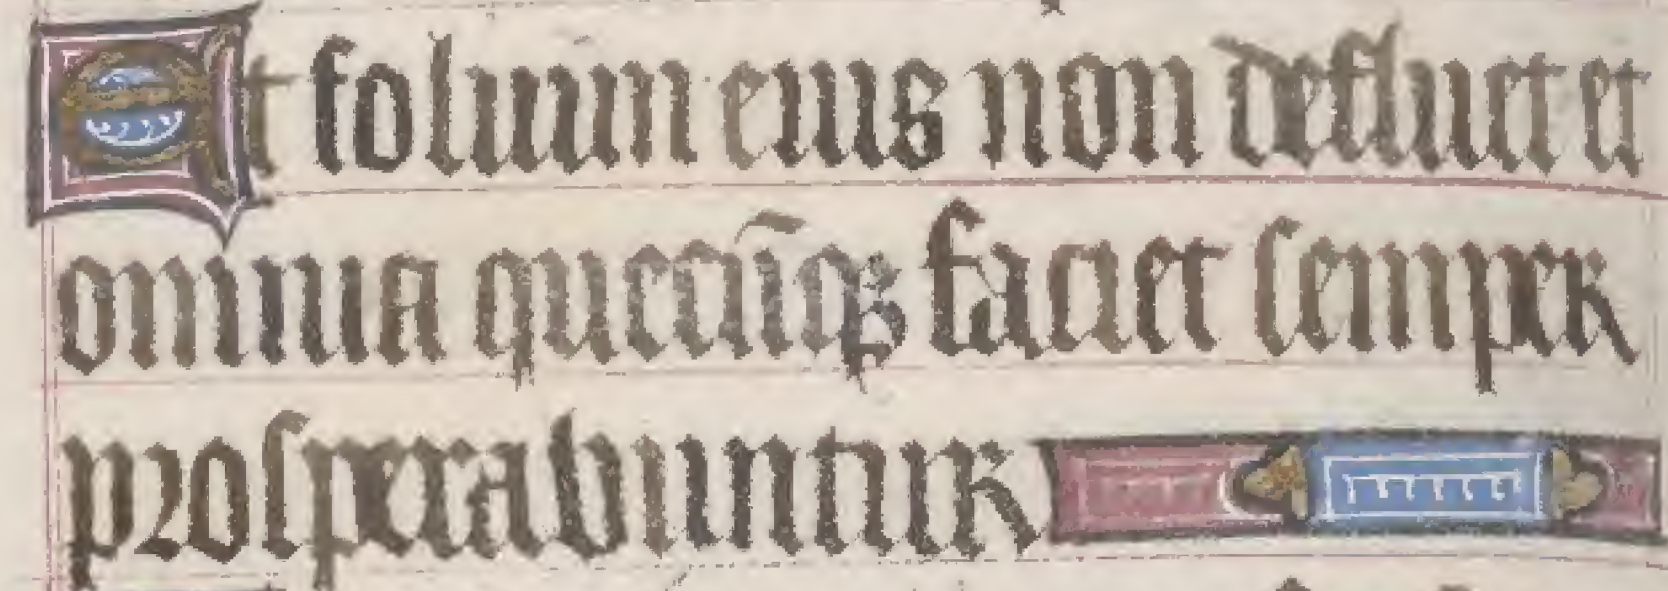 Et folium eius non defluet et
omnia quecũqꝫ faciet semper
prosperabuntur